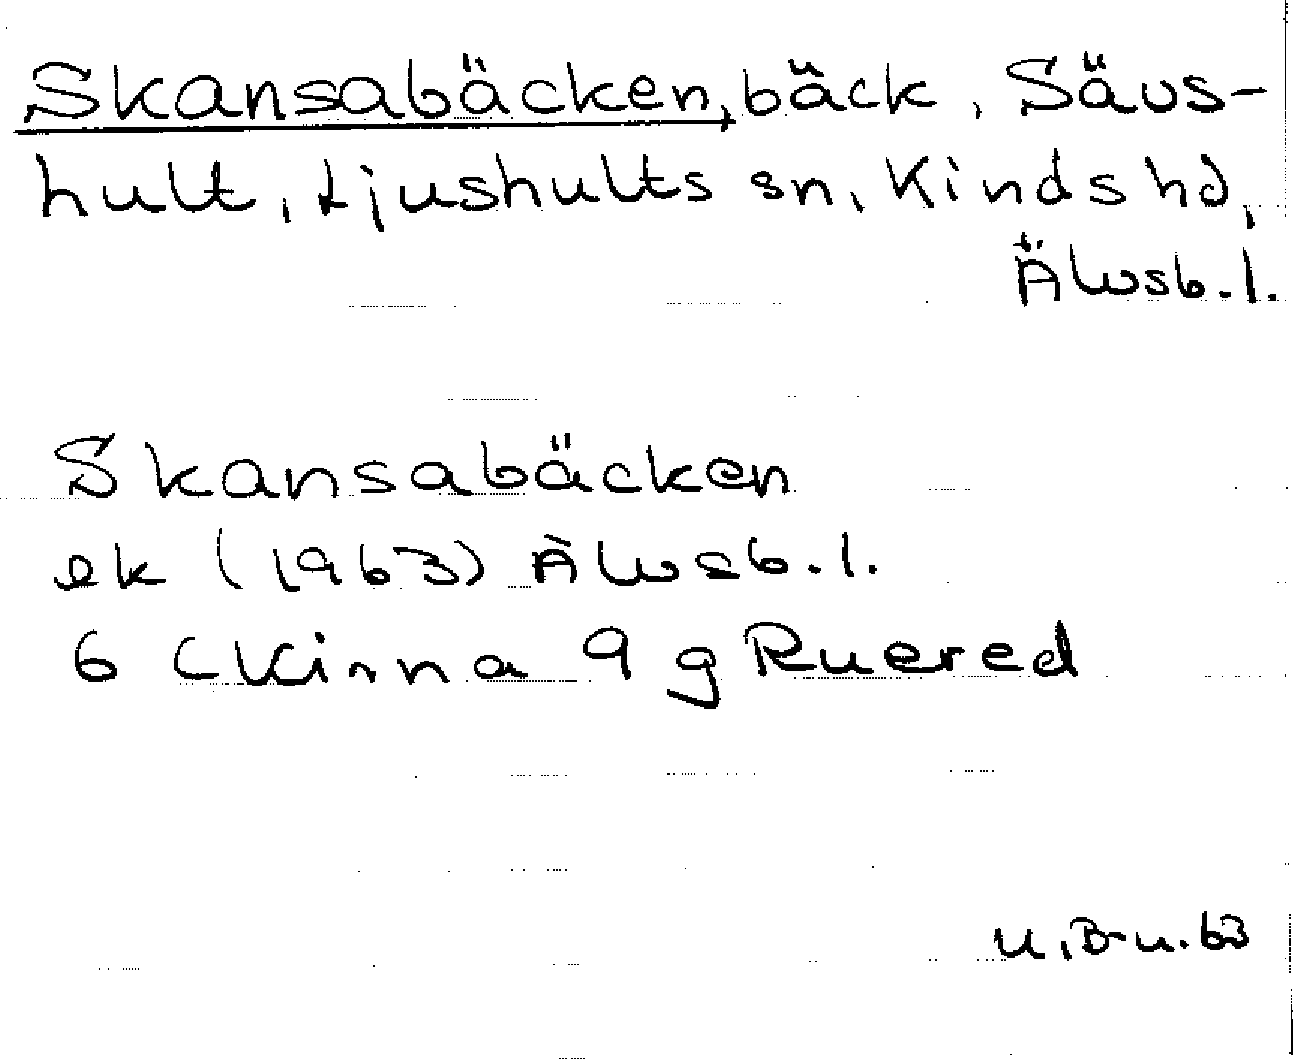 Skansabäcken, bäck, Sävs-
hult, Ljushults sn, Kinds hd,
Älvsb. l.
Skansabäcken
ek (1963) Älvsb. l.
6 C Kinna 9 g Ruered
U.B-u. 63